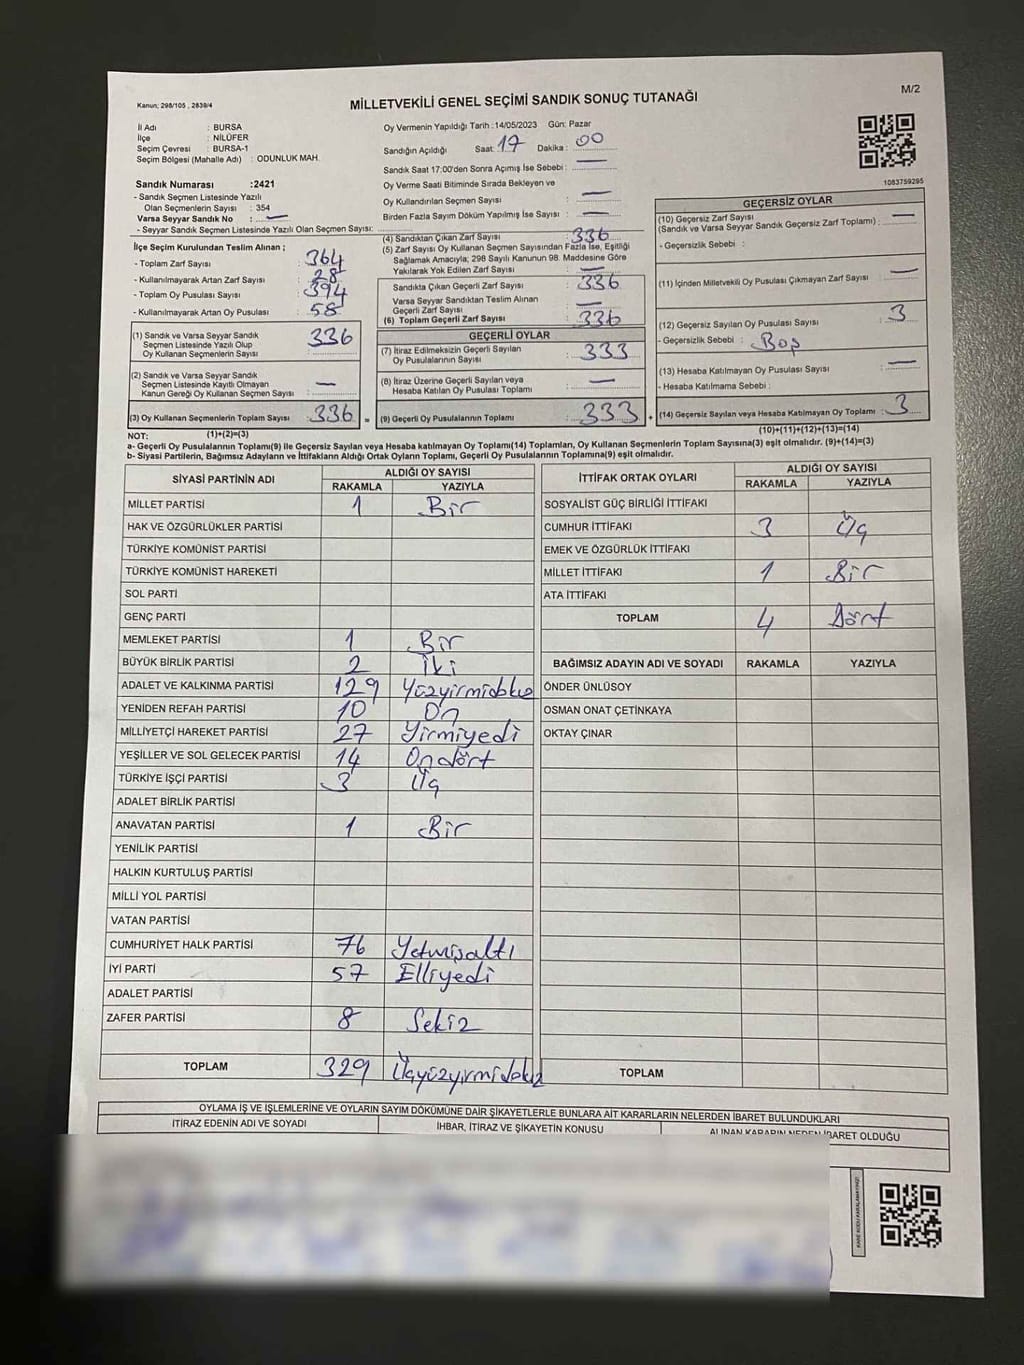 M/2
Kanun; 298/105 , 2839/4
MİLLETVEKİLİ GENEL SEÇİMİ SANDIK SONUÇ TUTANAĞI
İl Adı : BURSA
İlçe : NİLÜFER
Seçim Çevresi : BURSA-1
Seçim Bölgesi (Mahalle Adı) : ODUNLUK MAH.
Sandık Numarası :2421
- Sandık Seçmen Listesinde Yazılı
Olan Seçmenlerin Sayısı : 354
Varsa Seyyar Sandık No : —
- Seyyar Sandık Seçmen Listesinde Yazılı Olan Seçmen Sayısı:
Oy Vermenin Yapıldığı Tarih :14/05/2023 Gün: Pazar
Sandığın Açıldığı Saat: 17 Dakika : 00
Sandık Saat 17:00'den Sonra Açımış İse Sebebi : —
Oy Verme Saati Bitiminde Sırada Bekleyen ve
Oy Kullandırılan Seçmen Sayısı : —
Birden Fazla Sayım Döküm Yapılmış İse Sayısı : —
1083759295
İlçe Seçim Kurulundan Teslim Alınan ;
- Toplam Zarf Sayısı : 364
- Kullanılmayarak Artan Zarf Sayısı : 28
- Toplam Oy Pusulası Sayısı : 394
- Kullanılmayarak Artan Oy Pusulası : 58
(1) Sandık ve Varsa Seyyar Sandık
Seçmen Listesinde Yazılı Olup
Oy Kullanan Seçmenlerin Sayısı : 336
(2) Sandık ve Varsa Seyyar Sandık
Seçmen Listesinde Kayıtlı Olmayan
Kanun Gereği Oy Kullanan Seçmen Sayısı : —
(3) Oy Kullanan Seçmenlerin Toplam Sayısı : 336 =
(4) Sandıktan Çıkan Zarf Sayısı : 336
(5) Zarf Sayısı Oy Kullanan Seçmen Sayısından Fazla İse, Eşitliği
Sağlamak Amacıyla; 298 Sayılı Kanunun 98. Maddesine Göre
Yakılarak Yok Edilen Zarf Sayısı : —
Sandıkta Çıkan Geçerli Zarf Sayısı : 336
Varsa Seyyar Sandıktan Teslim Alınan
Geçerli Zarf Sayısı : —
(6) Toplam Geçerli Zarf Sayısı : 336
GEÇERLİ OYLAR
(7) İtiraz Edilmeksizin Geçerli Sayılan
Oy Pusulalarının Sayısı : 333
(8) İtiraz Üzerine Geçerli Sayılan veya
Hesaba Katılan Oy Pusulası Toplamı : —
(9) Geçerli Oy Pusulalarının Toplamı : 333 +
GEÇERSİZ OYLAR
(10) Geçersiz Zarf Sayısı
(Sandık ve Varsa Seyyar Sandık Geçersiz Zarf Toplamı) : —
- Geçersizlik Sebebi :
(11) İçinden Milletvekili Oy Pusulası Çıkmayan Zarf Sayısı : —
(12) Geçersiz Sayılan Oy Pusulası Sayısı : 3
- Geçersizlik Sebebi : Boş
(13) Hesaba Katılmayan Oy Pusulası Sayısı : —
- Hesaba Katılmama Sebebi :
(14) Geçersiz Sayılan veya Hesaba Katılmayan Oy Toplamı : 3
NOT: (1)+(2)=(3) (10)+(11)+(12)+(13)=(14)
a- Geçerli Oy Pusulalarının Toplamı(9) ile Geçersiz Sayılan veya Hesaba katılmayan Oy Toplamı(14) Toplamları, Oy Kullanan Seçmenlerin Toplam Sayısına(3) eşit olmalıdır. (9)+(14)=(3)
b- Siyasi Partilerin, Bağımsız Adayların ve İttifakların Aldığı Ortak Oyların Toplamı, Geçerli Oy Pusulalarının Toplamına(9) eşit olmalıdır.
SİYASİ PARTİNİN ADI ALDIĞI OY SAYISI
RAKAMLA YAZIYLA
MİLLET PARTİSİ 1 Bir
HAK VE ÖZGÜRLÜKLER PARTİSİ
TÜRKİYE KOMÜNİST PARTİSİ
TÜRKİYE KOMÜNİST HAREKETİ
SOL PARTİ
GENÇ PARTİ
MEMLEKET PARTİSİ 1 Bir
BÜYÜK BİRLİK PARTİSİ 2 İki
ADALET VE KALKINMA PARTİSİ 129 Yüzyirmidokuz
YENİDEN REFAH PARTİSİ 10 On
MİLLİYETÇİ HAREKET PARTİSİ 27 Yirmiyedi
YEŞİLLER VE SOL GELECEK PARTİSİ 14 Ondört
TÜRKİYE İŞÇİ PARTİSİ 3 Üç
ADALET BİRLİK PARTİSİ
ANAVATAN PARTİSİ 1 Bir
YENİLİK PARTİSİ
HALKIN KURTULUŞ PARTİSİ
MİLLİ YOL PARTİSİ
VATAN PARTİSİ
CUMHURİYET HALK PARTİSİ 76 Yetmişaltı
İYİ PARTİ 57 Elliyedi
ADALET PARTİSİ
ZAFER PARTİSİ 8 Sekiz
TOPLAM 329 Üçyüzyirmidokuz
İTTİFAK ORTAK OYLARI ALDIĞI OY SAYISI
RAKAMLA YAZIYLA
SOSYALİST GÜÇ BİRLİĞİ İTTİFAKI
CUMHUR İTTİFAKI 3 Üç
EMEK VE ÖZGÜRLÜK İTTİFAKI
MİLLET İTTİFAKI 1 Bir
ATA İTTİFAKI
TOPLAM 4 Dört
BAĞIMSIZ ADAYIN ADI VE SOYADI RAKAMLA YAZIYLA
ÖNDER ÜNLÜSOY
OSMAN ONAT ÇETİNKAYA
OKTAY ÇINAR
TOPLAM
OYLAMA İŞ VE İŞLEMLERİNE VE OYLARIN SAYIM DÖKÜMÜNE DAİR ŞİKAYETLERLE BUNLARA AİT KARARLARIN NELERDEN İBARET BULUNDUKLARI
İTİRAZ EDENİN ADI VE SOYADI İHBAR, İTİRAZ VE ŞİKAYETİN KONUSU ALINAN KARARIN NEDEN İBARET OLDUĞU
KARE KODU KARALAMAYINIZ!